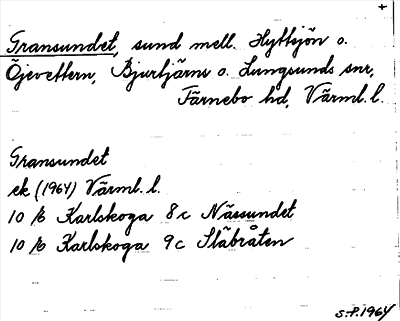 Gransundet, sund mell. Hyttsjön o.
Öjevettern, Bjurtjärns o. Lungsunds snr,
Färnebo hd, Värml. l.
Gransundet
ek (1964) Värml. l.
10 /6 Karlskoga 8c Nässundet
10 /6 Karlskoga 9c Släbråten
S.P. 1964